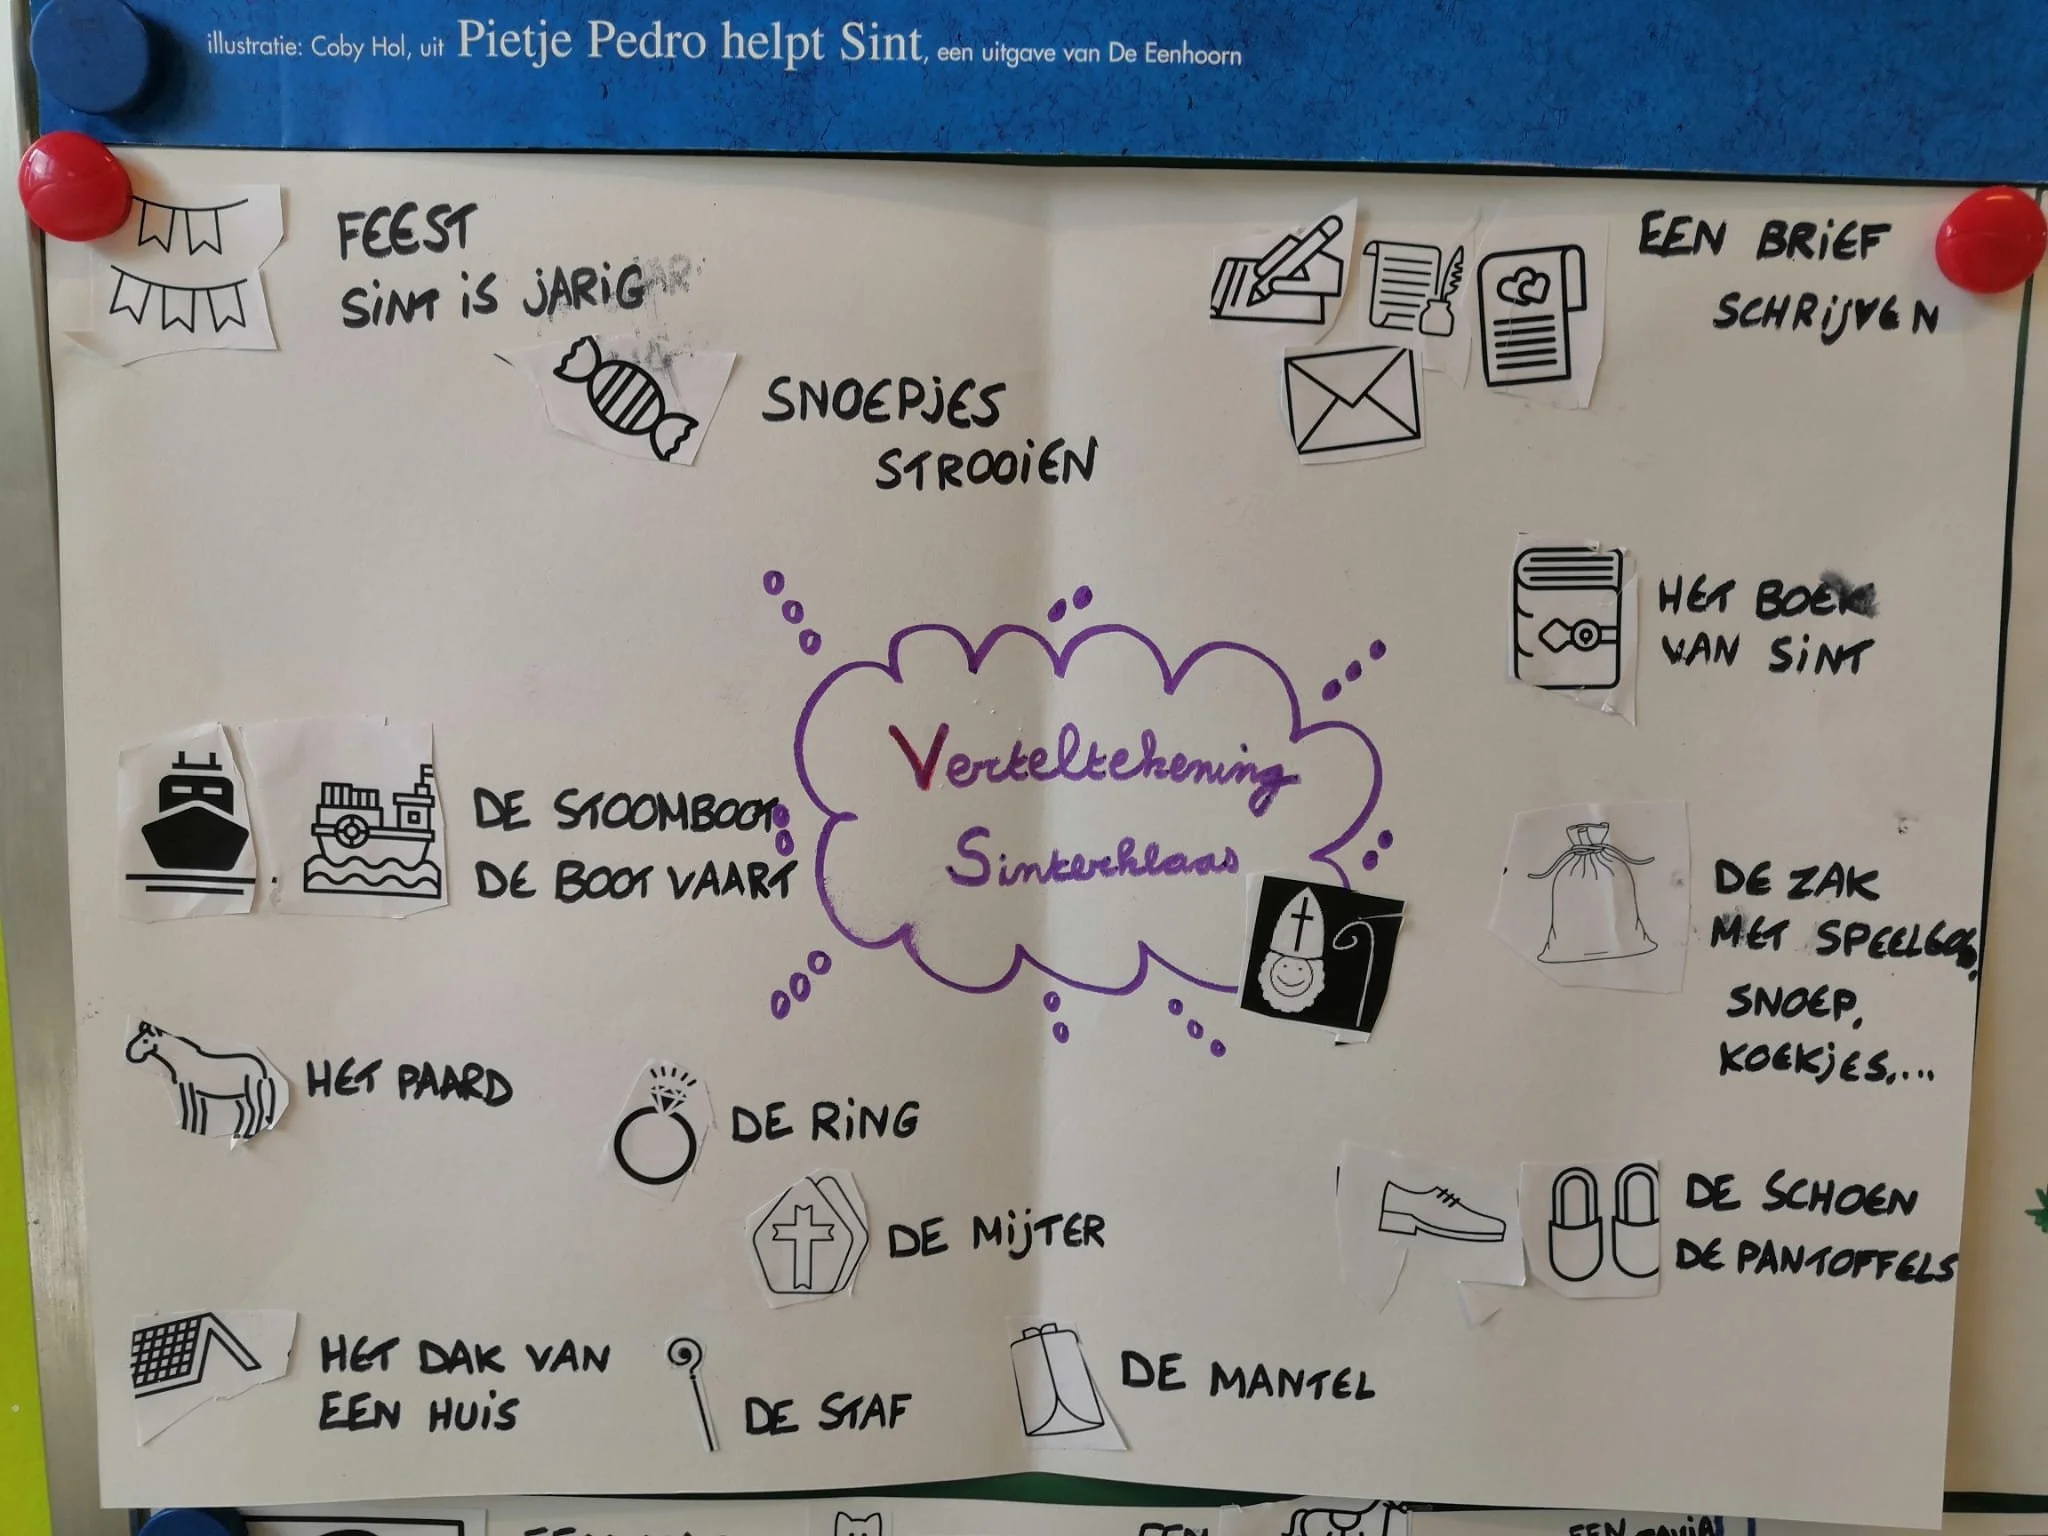 illustratie: Coby Hol, uit Pietje Pedro helpt Sint, een uitgave van De Eenhoorn
FEEST
SINT IS JARIG
SNOEPJES
STROOIEN
EEN BRIEF
SCHRIJVEN
HET BOEK
VAN SINT
Verteltekening
Sinterklaas
DE STOOMBOOT
DE BOOT VAART
DE ZAK
MET SPEELGOED,
SNOEP,
KOEKJES,...
HET PAARD
DE RING
DE MIJTER
DE SCHOEN
DE PANTOFFELS
HET DAK VAN
EEN HUIS
DE STAF
DE MANTEL
EEN